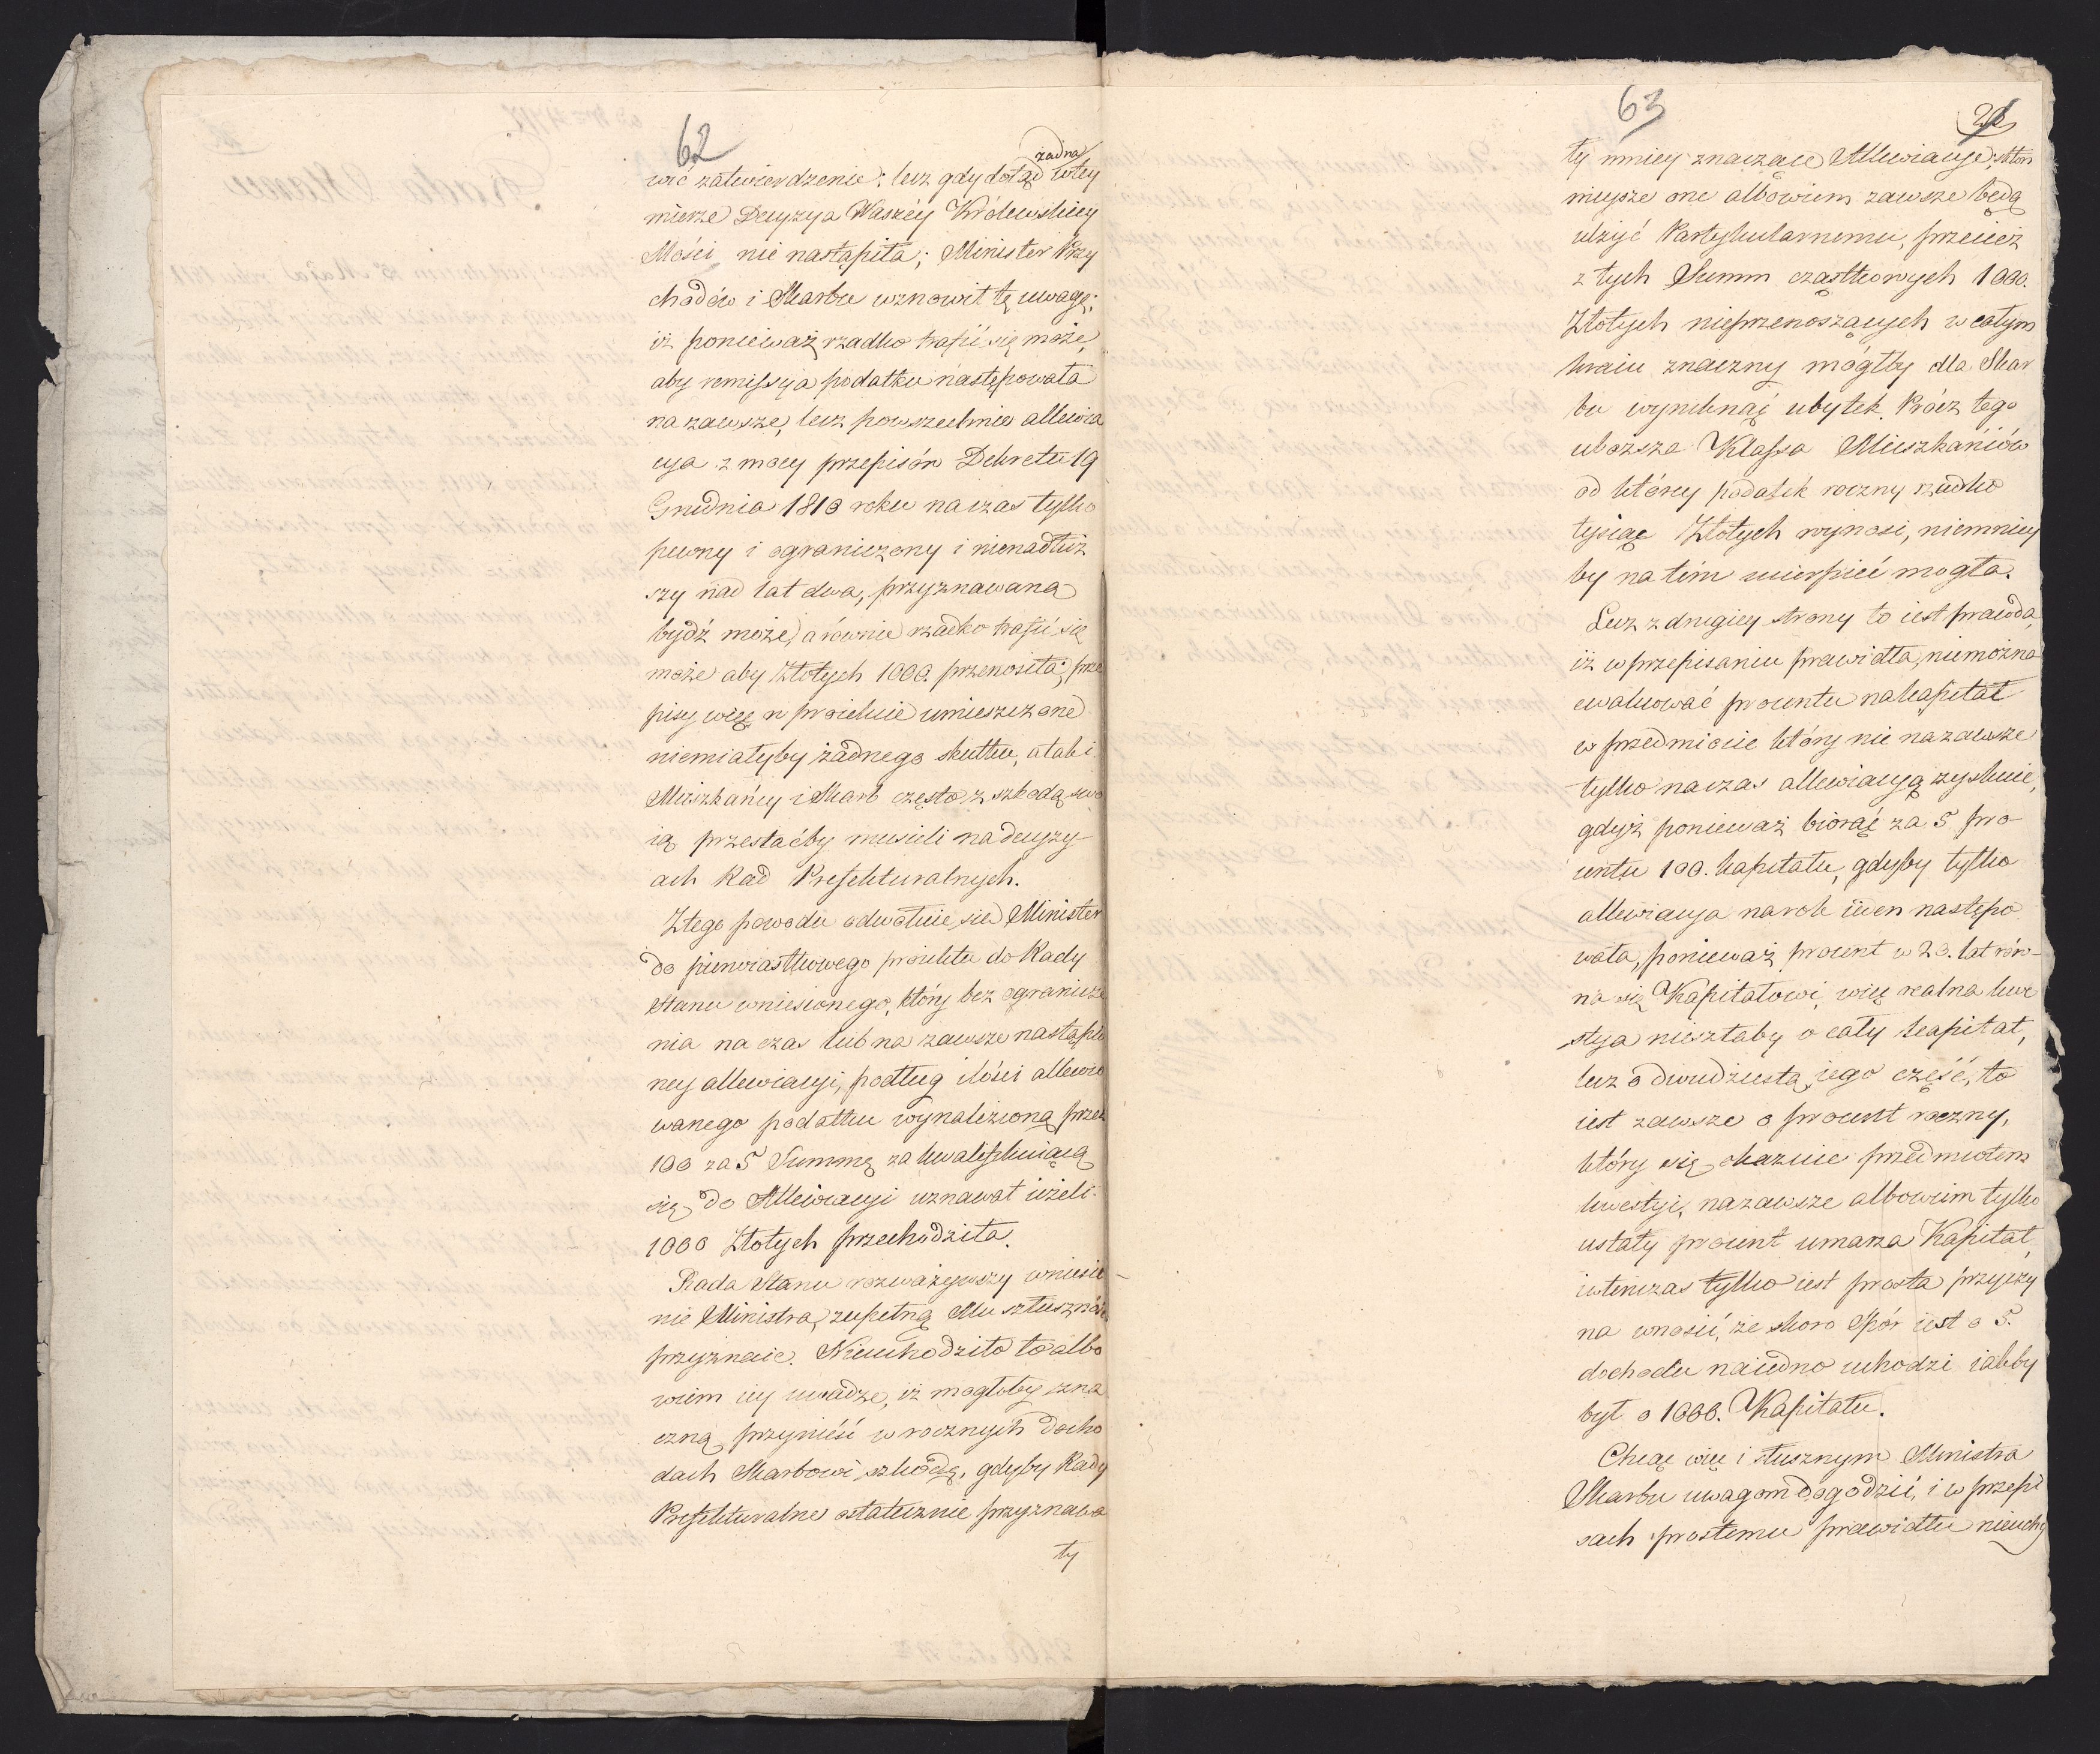 62
żadna
wić zatwierdzenie; lecz gdy dotąd w tey
mierze Decyzya Waszéy Królewskiey
Mości nie nastąpiła; Minister Przy
chodów i Skarbu wznowił tę uwagę;
iż ponieważ rzadko trafić się może,
aby remissya podatku następowała
na zawsze, lecz powszechnie allewia
cya z mocy przepisów Dekretu 19
Grudnia 1810 roku na czas tylko
pewny i ograniczony i nienadłuż
szy nad lat dwa, przyznawaną
bydź może, a równie rzadko trafić się
może aby Złotych 1000. przenosiła; prze
pisy więc w proiekcie umieszczone
niemiałyby żadnego skutku, a tak i
Mieszkańcy i Skarb często z szkodą swo
ią przestaćby musieli na decyzy
ach Rad Prefekturalnych.
Z tego powodu odwołuie się Minister
do pierwiastkowego proiektu do Rady
Stanu wniesionego, który bez ogranicze
nia na czas lub na zawsze nastąpio
ney allewiacyi, podług ilości allewio
wanego podatku wynalezioną przez
100 za 5 Summę za kwalifikuiącą
się do Allewiacyi uznawał ieżeli
1000 Złotych przechodziła.
Rada Stanu rozważywszy wniesie
nie Ministra, zupełną Mu słuszność
przyznaie. Nieuchodziło to albo
wiem iey uwadze, iż mogłoby zna
czną przynieść w rocznych docho
dach Skarbowi szkodę, gdyby Rady
Prefekturalne ostatecznie przyznawa
ty
63
ty mniey znaczące Allewiacye;
mieysze one albowiem zawsze będą
ulżyć Partykularnemu, przecież
z tych Summ cząstkowych 1000.
Złotych nieprzenoszących w całym
kraiu znaczny mógłby dla Skar
bu wyniknąć ubytek. Prócz tego
uboższa Klassa Mieszkańców
od którey podatek roczny rzadko
tysiąc Złotych wynosi, niemniey
by na tém ucierpieć mogła.
Lecz z drugiey strony to iest prawdą,
iż w przepisaniu prawidła, niemożna
ewaluować procentu na kapitał
w przedmiocie który nie na zawsze
tylko na czas allewiacyą zyskuie,
gdyż ponieważ biorąc za 5 pro
centu 100. kapitału, gdyby tylko
allewiacya na rok ieden nastepo
wała, ponieważ procent w 20. lat rów-
na się Kapitałowi, więc realna kwe
stya nieszłaby o cały kapitał,
lecz o dwudziestą iego część, to
iest zawsze o procent roczny,
który się okazuie przedmiotem
kwestyi, na zawsze albowiem tylko
ustały procent umarza Kapitał,
i wtenczas tylko iest prosta przyczy
na wnosić, że skoro Spór iest o 5.
dochodu na iedno uchodzi iakby
był o 1000. Kapitału.
Chcąc więc i słusznym Ministra
Skarbu uwagom dogodzić, i w przepi
sach prostemu prawidłu nieuchy